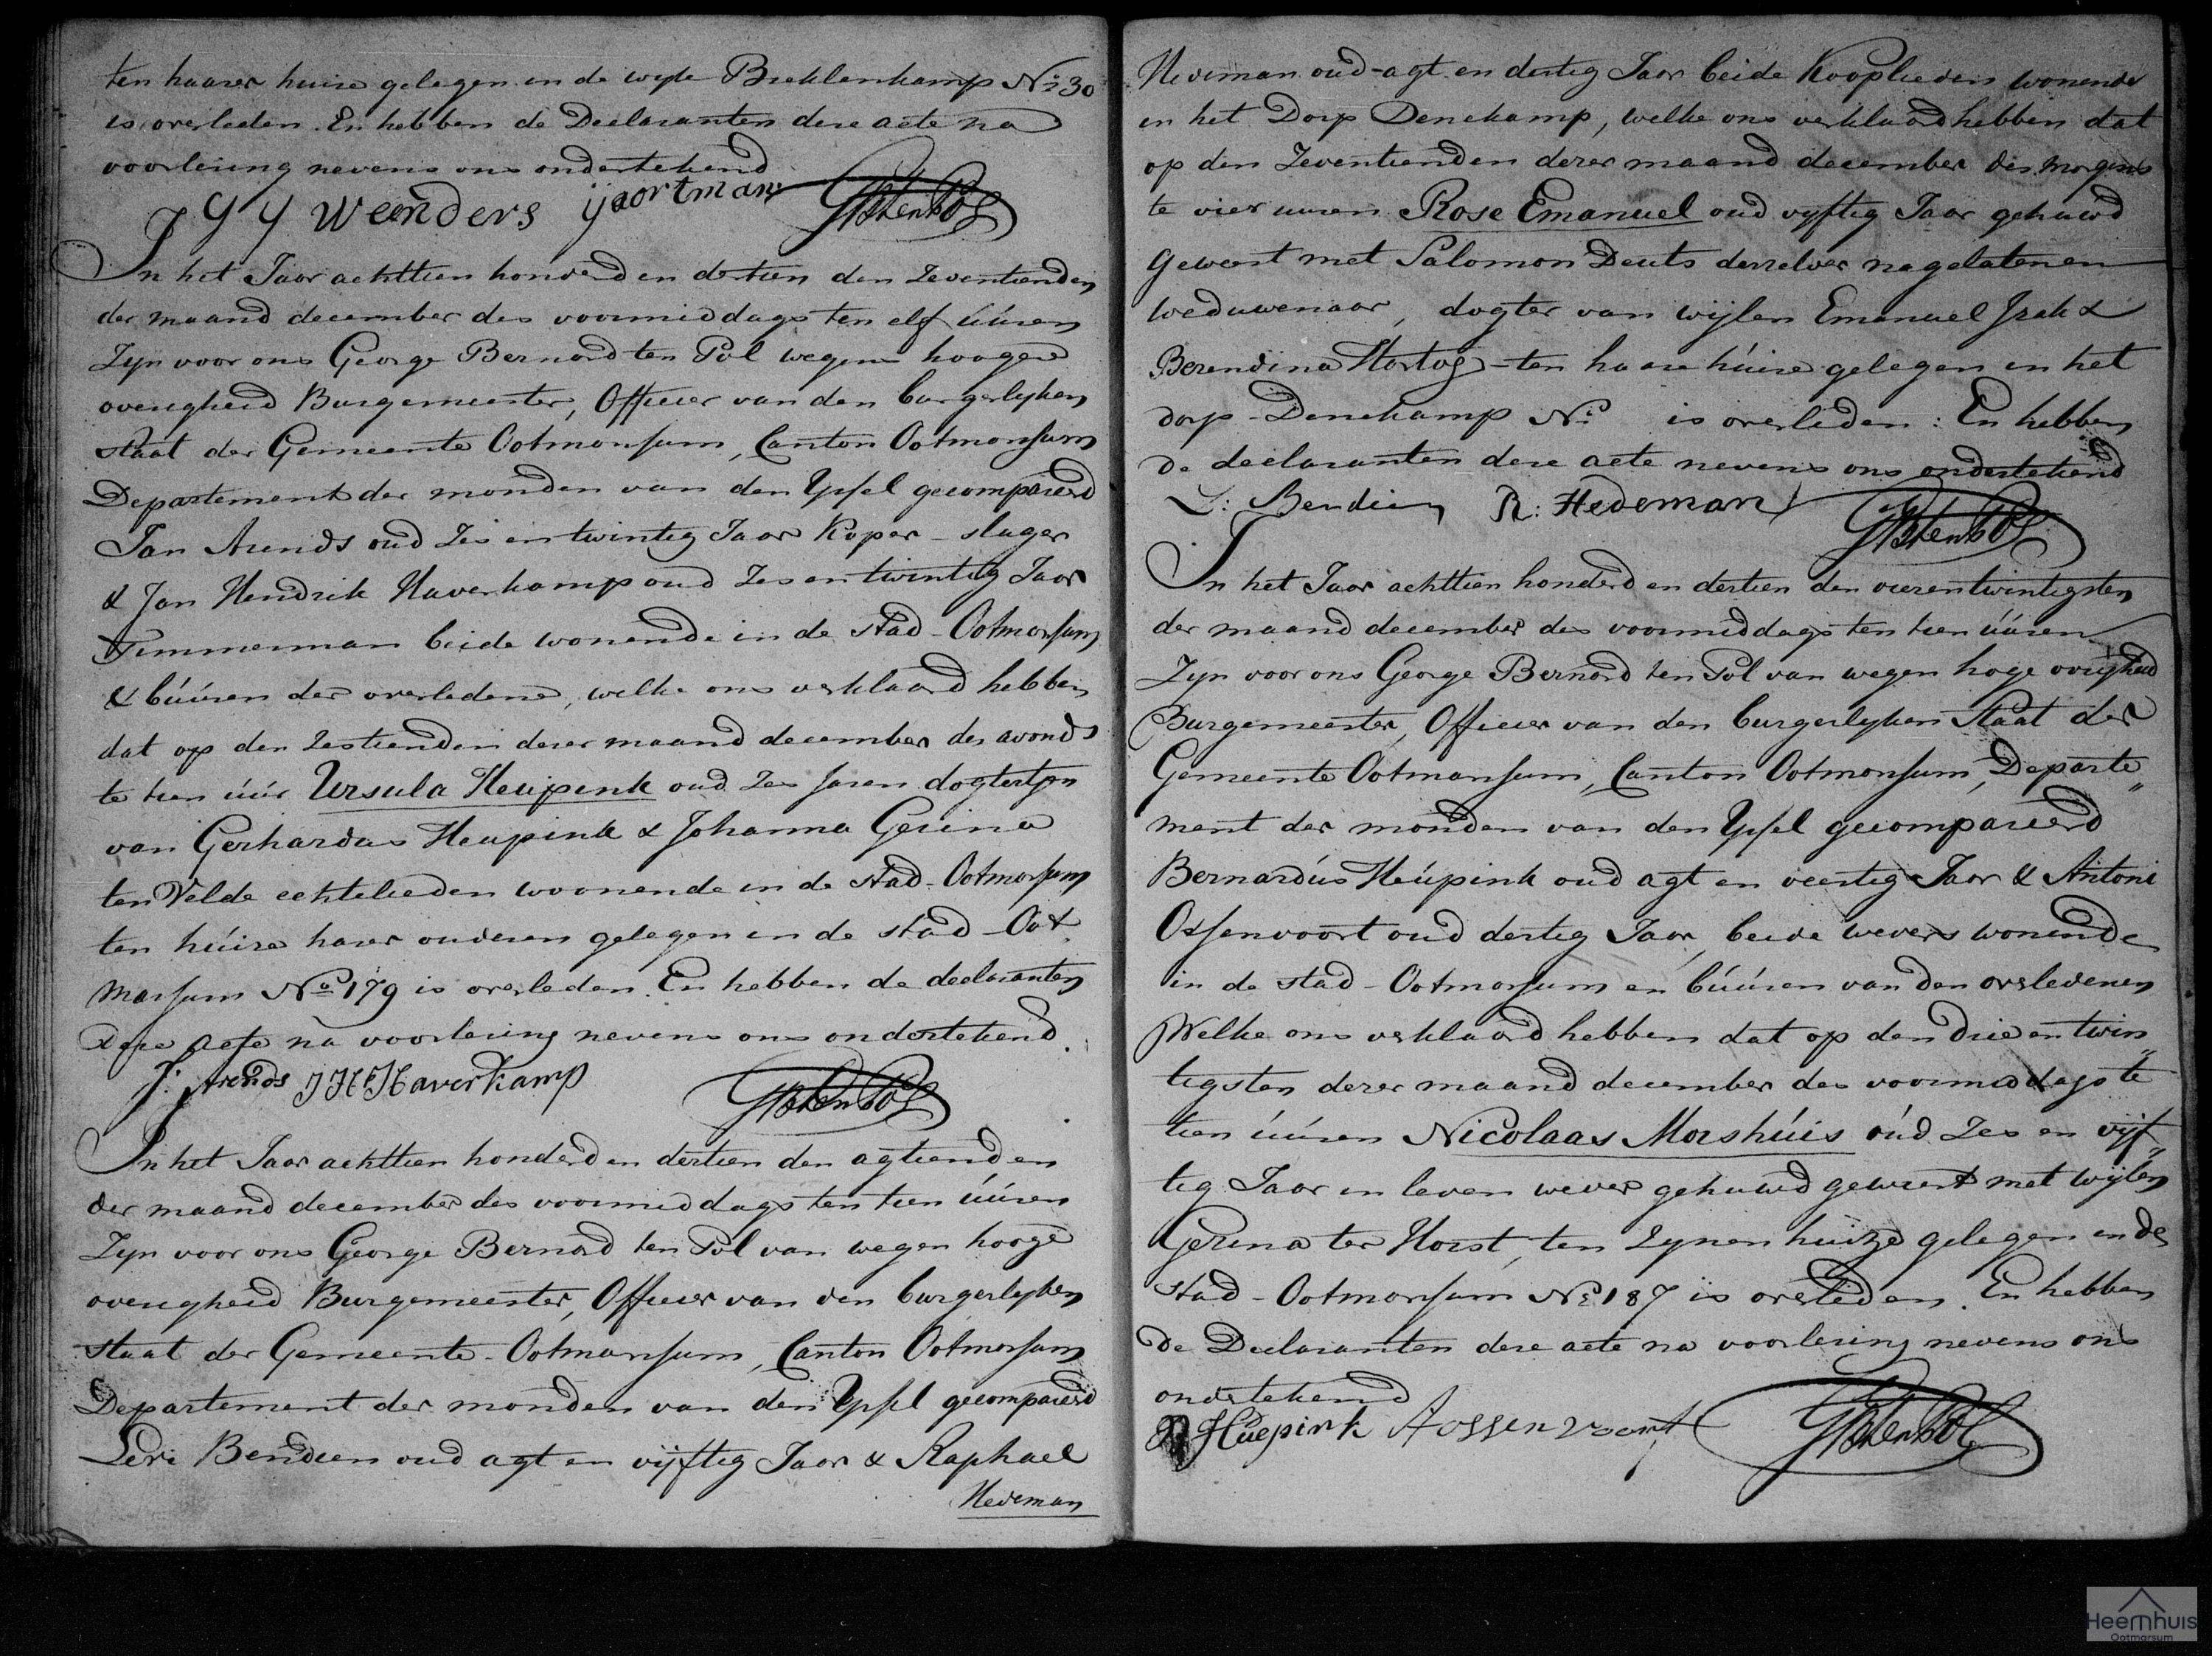 ten haarer huise gelegen in de wyk Breklenkamp No 30
is overleden. En hebben de Declaranten dese acte na
voorlesing nevens ons ondertekend
J G Y Weenders ijaortman GBtenPol
In het Jaar achttien honderd en dertien den Zeventienden
der maand december des voormiddags ten elf úúren
Zyn voor ons George Bernard ten Pol wegens hoogere
overigheid Burgemeester, Officier van den burgerlyken
staat der Gemeente Ootmarsum, Canton Ootmarsum
Departement der monden van den Yssel gecompareerd
Jan Arends oud Zes en twintig Jaar Koper-slager
& Jan Hendrik Haverkamp oud Zes en twintig Jaar
Timmerman beide wonende in de stad-Ootmarsum
& búúren der overledene, welke ons verklaard hebben
dat op den Zestienden dezer maand december des avonds
te tien úúr Ursula Heupink oud Zes Jaren dogtertjen
van Gerhardus Heupink & Johanna Gesina
ten Velde echtelieden woonende in de stad-Ootmarsum
ten húise harer ouderen gelegen in de stad-Oot
marsum No 179 is overleden. En hebben de declaranten
dese acte na voorlesing nevens ons ondertekend.
J: Arends JHHaverkamp GBtenPol
In het Jaar achttien honderd en dertien den agtienden
der maand december des voormiddags ten tien úúren
Zyn voor ons George Bernard ten Pol van wegen hooge
overigheid Burgemeester, Officier van den burgerlyken
staat der Gemeente-Ootmarsum, Canton Ootmarsum
Departement der monden van den Yssel gecompareerd
Levi Bendien oud agt en vijftig Jaar & Raphael
Hedeman
Hedeman oud-agt en dertig Jaar beide Kooplieden wonende
in het Dorp Denekamp, welke ons verklaard hebben dat
op den Zeventienden dezer maand december des morgens
te vier uuren Rose Emanuel oud vyftig Jaar gehuwd
geweest met Salomon Deuts derzelver nagelatenen
weduwenaar, dogter van wijlen Emanuel Izak &
Berendina Hartog-ten haare húise gelegen in het
dorp-Denekamp No is overleden: En hebben
de declaranten dese acte nevens ons ondertekend
L: Bendien R: Hedeman GBtenPol
In het Jaar achttien honderd en dertien den vierentwintigsten
der maand december des voormiddags ten tien úúren
Zyn voor ons George Bernard ten Pol van wegen hoge overigheid
Burgemeester, Officier van den burgerlyken Staat der
Gemeente Ootmarsum, Canton Ootmarsum, Departe„
ment der monden van den Yssel gecompareerd
Bernardús Heúpink oud agt en veertig Jaar & Antoni
Ossenvoort oud dertig Jaar, beide wevers wonende
in de stad-Ootmarsum en búúren van den overledenen
Welke ons verklaard hebben dat op den drie en twin„
tigsten dezer maand december des voormiddags te
tien úúren Nicolaas Morshúis oúd Zes en vijf„
tig Jaar in leven wever gehuwd geweest met wijlen
Gesina ter Horst, ten Zynen huize gelegen in de
stad-Ootmarsum No 187 is overleden. En hebben
de Declaranten dese acte na voorlesing nevens ons
ondertekend
B Hüepink Aossenvoort GBtenPol
Heemhuis
Ootmarsum